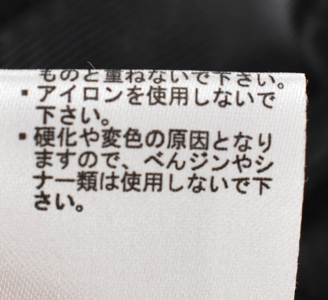 ものと重ねないで下さい。
▪アイロンを使用しないで
下さい。
▪硬化や変色の原因となり
ますので、べんジンやシ
ナー類は使用しないで下
さい。